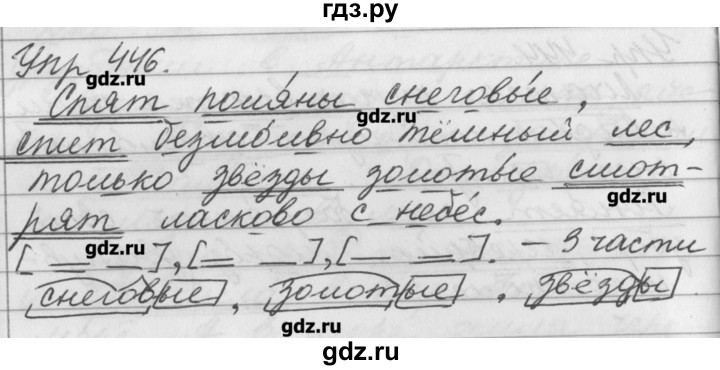 гдз.ру
Упр 446.
gdz.ru
Спят поля́ны снеговы́е,
gdz.ru
спит безмо́лвно тёмный лес,
только звёзды золотые смот-
gdz.ru
рят ласково с небе́с.
[ ═ — ], [ ═ — ], [ — ═ ]. – 3 части
gdz.ru
снеговые, золотые, звёзды
gdz.ru
gdz.ru